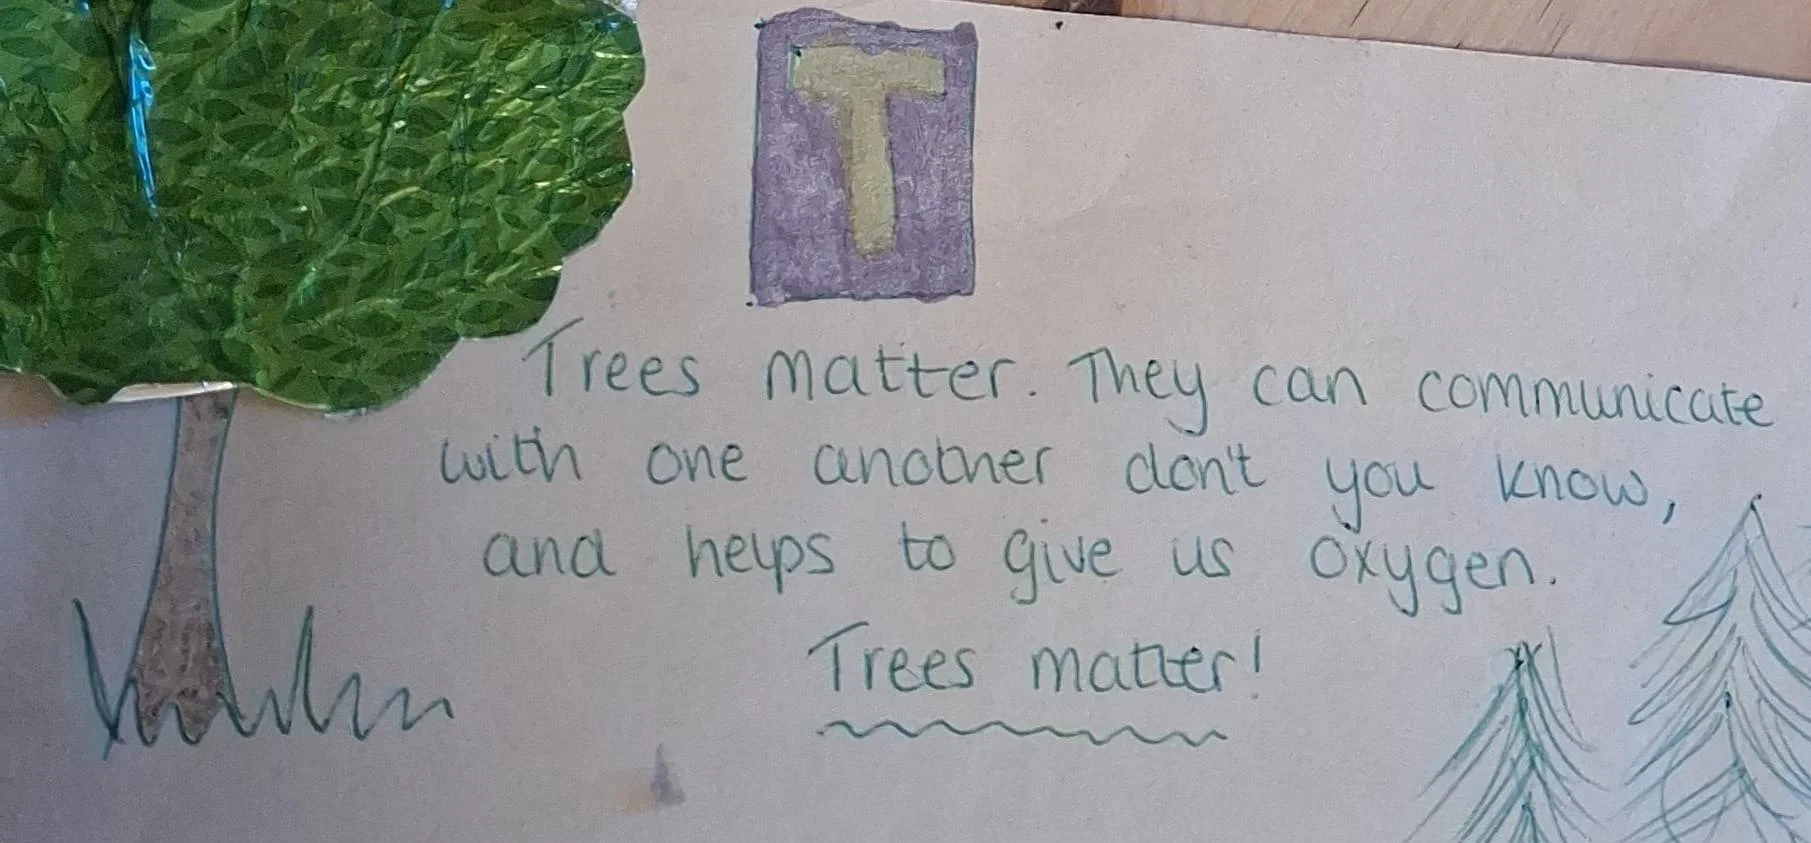 T
Trees matter. They can communicate
with one another don't you know,
and helps to give us oxygen.
Trees matter!